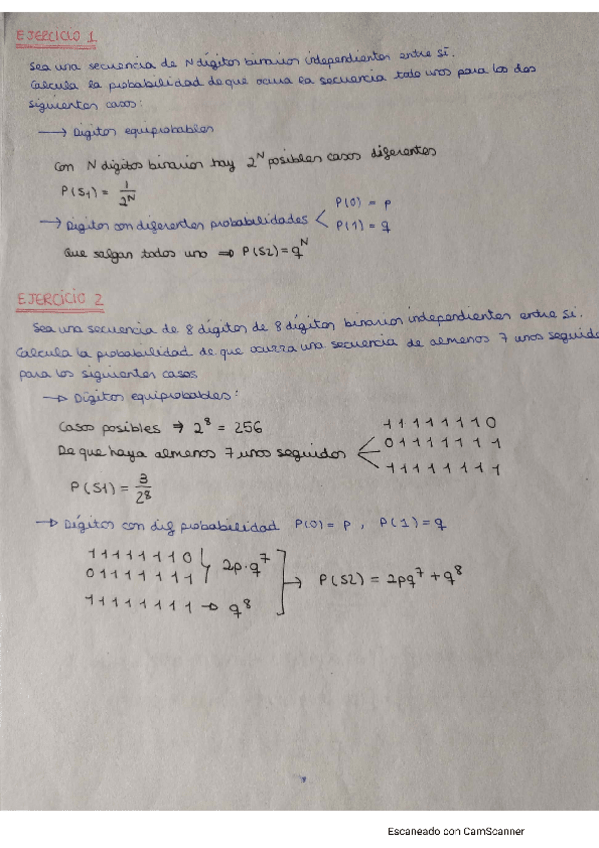 EJERCICIO 1
Sea una secuencia de N dígitos binarios independientes entre sí.
Calcula la probabilidad de que ocurra la secuencia todo unos para los dos
siguientes casos:
→ Dígitos equiprobables
Con N dígitos binarios hay 2^N posibles casos diferentes
P(S1) = 1/2^N
→ Dígitos con diferentes probabilidades < P(0) = p
P(1) = q
Que salgan todos uno ⇒ P(S2) = q^N
EJERCICIO 2
Sea una secuencia de 8 dígitos de 8 dígitos binarios independientes entre sí.
Calcula la probabilidad de que ocurra una secuencia de almenos 7 unos seguidos
para los siguientes casos
→ Dígitos equiprobables:
Casos posibles ⇒ 2^8 = 256
1 1 1 1 1 1 1 0
De que haya almenos 7 unos seguidos < 0 1 1 1 1 1 1 1
1 1 1 1 1 1 1 1
P(S1) = 3/2^8
→ Dígitos con dif probabilidad P(0) = p , P(1) = q
1 1 1 1 1 1 1 0
0 1 1 1 1 1 1 1 } 2p·q^7
1 1 1 1 1 1 1 1 → q^8 ] → P(S2) = 2pq^7 + q^8
Escaneado con CamScanner